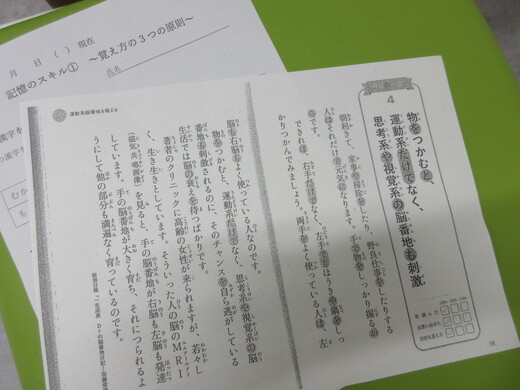 月　日（　）現在
記憶のスキル① 〜覚え方の３つの原則〜
氏名
運動系脳番地を鍛える
4
物をつかむと、
運動系だけでなく、
思考系や視覚系の脳番地も刺激
朝起きて、家事や掃除をしたり、野良仕事をしたりする
人はそれだけで元気になります。手で物をしっかり握るか
らです。
できれば、右手だけでなく、左手でもほうきや鍬をしっ
かりつかんでみましょう。両手をよく使っている人は、左
脳も右脳もよく使っている人なのです。
物をつかむと、運動系だけでなく、思考系や視覚系の脳
番地も刺激されるのに、そのチャンスを自ら逃がしている
生活では脳の衰えを待つばかりです。
著者のクリニックに高齢の女性が来られますが、若々し
く、生き生きとしています。そういった人の脳のＭＲＩ
（磁気共鳴画像）を見ると、手の脳番地が右脳も左脳も発達
しています。手の脳番地が大きく育ち、それにつられるよ
うにして他の部分も満遍なく育っているのです。
18